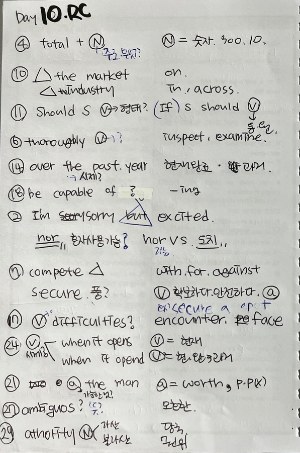 Day 10. RC
④ total + Ⓝ Ⓝ = 숫자. 300. 10.
⑩ △ the market on.
△ industry in, across.
⑪ Should S Ⓥ→형태? (If) S should Ⓥ
⑤ thoroughly Ⓥ? inspect, examine.
⑭ over the past year 현재완료
시제?
⑱ be capable of ? -ing
② I'm sorry but excited.
nor 혼자사용가능? nor VS. 도치
⑦ compete △ with. for. against
secure 품? Ⓥ 확보하다. 안전하다. ⓐ
secure a
Ⓥ difficulties? encounter face
㉔ Ⓥ when it opens Ⓥ = 현재
시제 when it opend Ⓥ =
㉑ ⓐ the man ⓐ = worth, P.P(X)
ambiguos? 모호한.
㉙ athority Ⓝ 가산 당국,
불가산